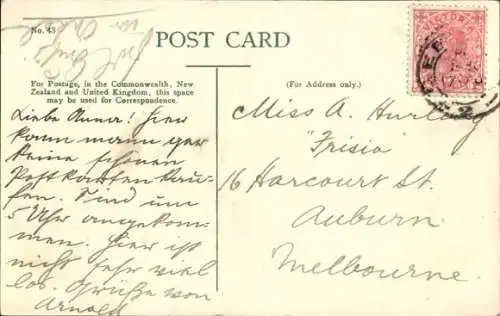 No. 43
POST CARD
For Postage, in the Commonwealth, New
Zealand and United Kingdom, this space
may be used for Correspondence.
(For Address only.)
VICTORIA
Liebe Anna! Hier
kann mann gar
keine schönen
Postkarten kau-
fen. Sind um
5 Uhr angekom-
men. Hier ist
nicht sehr viel
los. Grüße von
Arnold
Miss A. Hurling
"Frisia"
16 Harcourt St.
Auburn.
Melbourne.